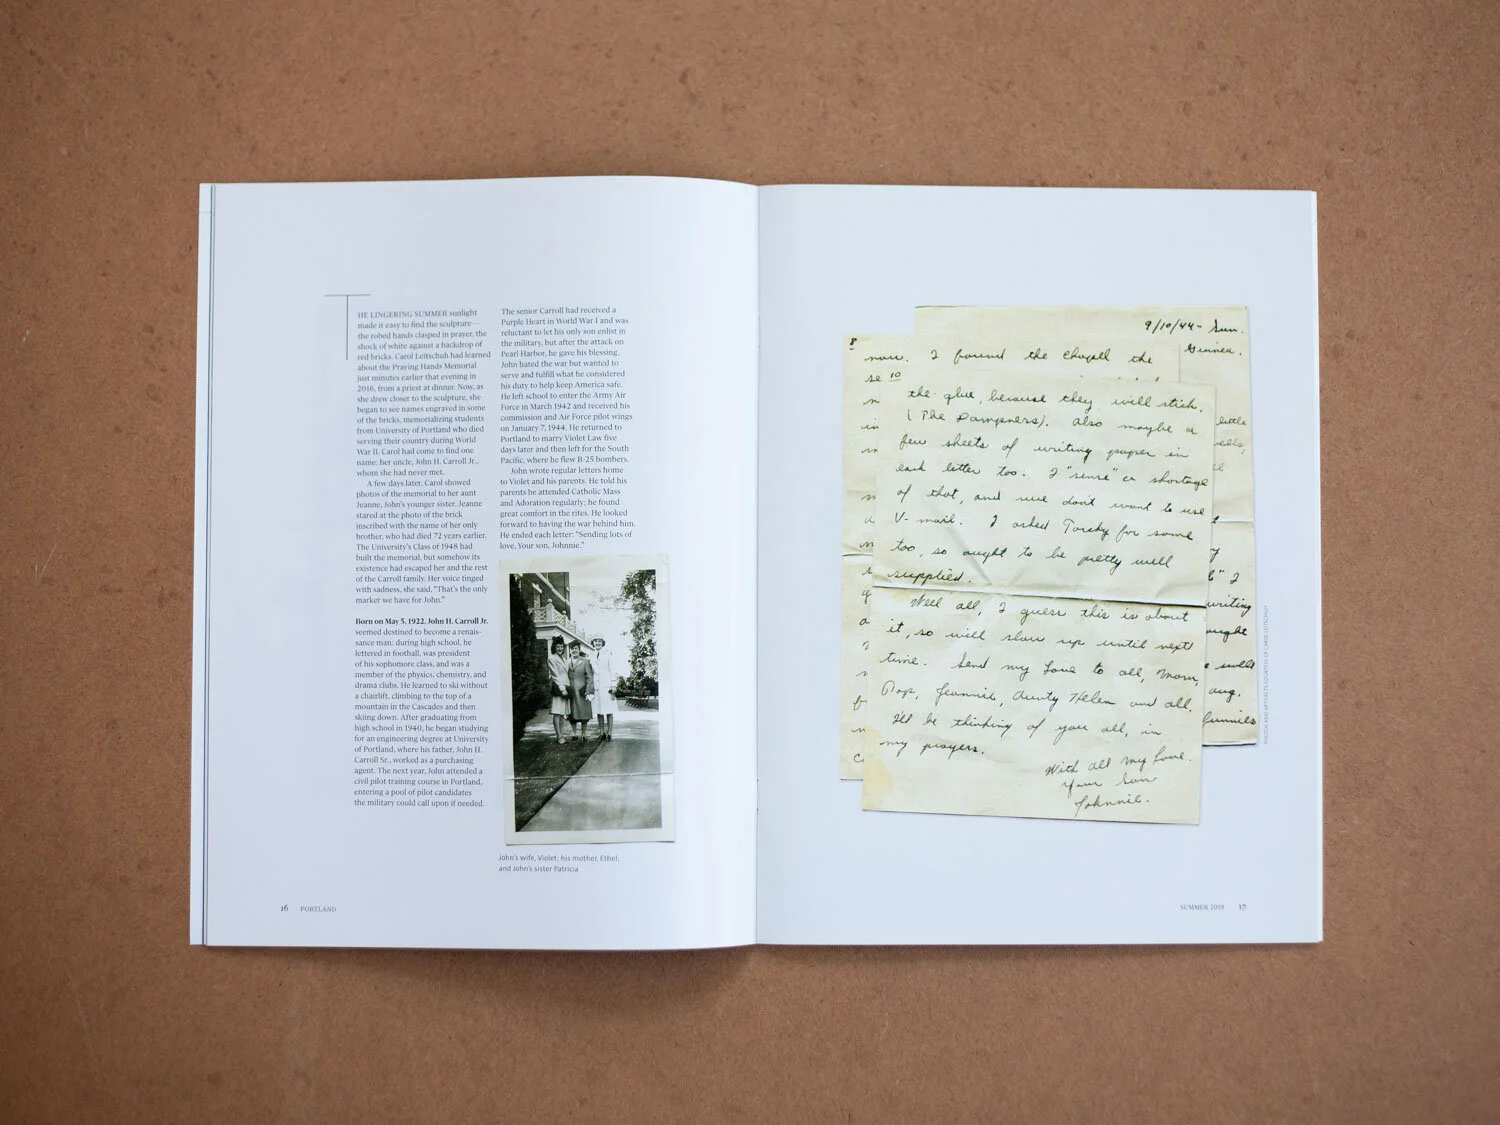 THE LINGERING SUMMER sunlight
made it easy to find the sculpture—
the robed hands clasped in prayer, the
shock of white against a backdrop of
red bricks. Carol Leitschuh had learned
about the Praying Hands Memorial
just minutes earlier that evening in
2016, from a priest at dinner. Now, as
she drew closer to the sculpture, she
began to see names engraved in some
of the bricks, memorializing students
from University of Portland who died
serving their country during World
War II. Carol had come to find one
name: her uncle, John H. Carroll Jr.,
whom she had never met.
A few days later, Carol showed
photos of the memorial to her aunt
Jeanne, John's younger sister. Jeanne
stared at the photo of the brick
inscribed with the name of her only
brother, who had died 72 years earlier.
The University's Class of 1948 had
built the memorial, but somehow its
existence had escaped her and the rest
of the Carroll family. Her voice tinged
with sadness, she said, "That's the only
marker we have for John."
Born on May 5, 1922, John H. Carroll Jr.
seemed destined to become a renais-
sance man: during high school, he
lettered in football, was president
of his sophomore class, and was a
member of the physics, chemistry, and
drama clubs. He learned to ski without
a chairlift, climbing to the top of a
mountain in the Cascades and then
skiing down. After graduating from
high school in 1940, he began studying
for an engineering degree at University
of Portland, where his father, John H.
Carroll Sr., worked as a purchasing
agent. The next year, John attended a
civil pilot training course in Portland,
entering a pool of pilot candidates
the military could call upon if needed.
The senior Carroll had received a
Purple Heart in World War I and was
reluctant to let his only son enlist in
the military, but after the attack on
Pearl Harbor, he gave his blessing.
John hated the war but wanted to
serve and fulfill what he considered
his duty to help keep America safe.
He left school to enter the Army Air
Force in March 1942 and received his
commission and Air Force pilot wings
on January 7, 1944. He returned to
Portland to marry Violet Law five
days later and then left for the South
Pacific, where he flew B-25 bombers.
John wrote regular letters home
to Violet and his parents. He told his
parents he attended Catholic Mass
and Adoration regularly; he found
great comfort in the rites. He looked
forward to having the war behind him.
He ended each letter: "Sending lots of
love, Your son, Johnnie."
John's wife, Violet; his mother, Ethel;
and John's sister Patricia
16 PORTLAND
9/10/44 - Sun.
Guinea.
8
now. I found the Chapell the
se
10
the glue, because they will stick.
(The Dampness). Also maybe a
few sheets of writing paper in
each letter too. I "sense" a shortage
of that, and we don't want to use
V-mail. I asked Torchy for some
too, so ought to be pretty well
supplied.
Well all, I guess this is about
it, so will slow up until next
time. Send my Love to all, Mom,
Pop, Jeannie, Aunty Helen and all.
I'll be thinking of you all, in
my prayers.
With all my Love.
Your Son
Johnnie.
little
writing
well
funnies
PHOTOS AND ARTIFACTS COURTESY OF CAROL LEITSCHUH
SUMMER 2019 17